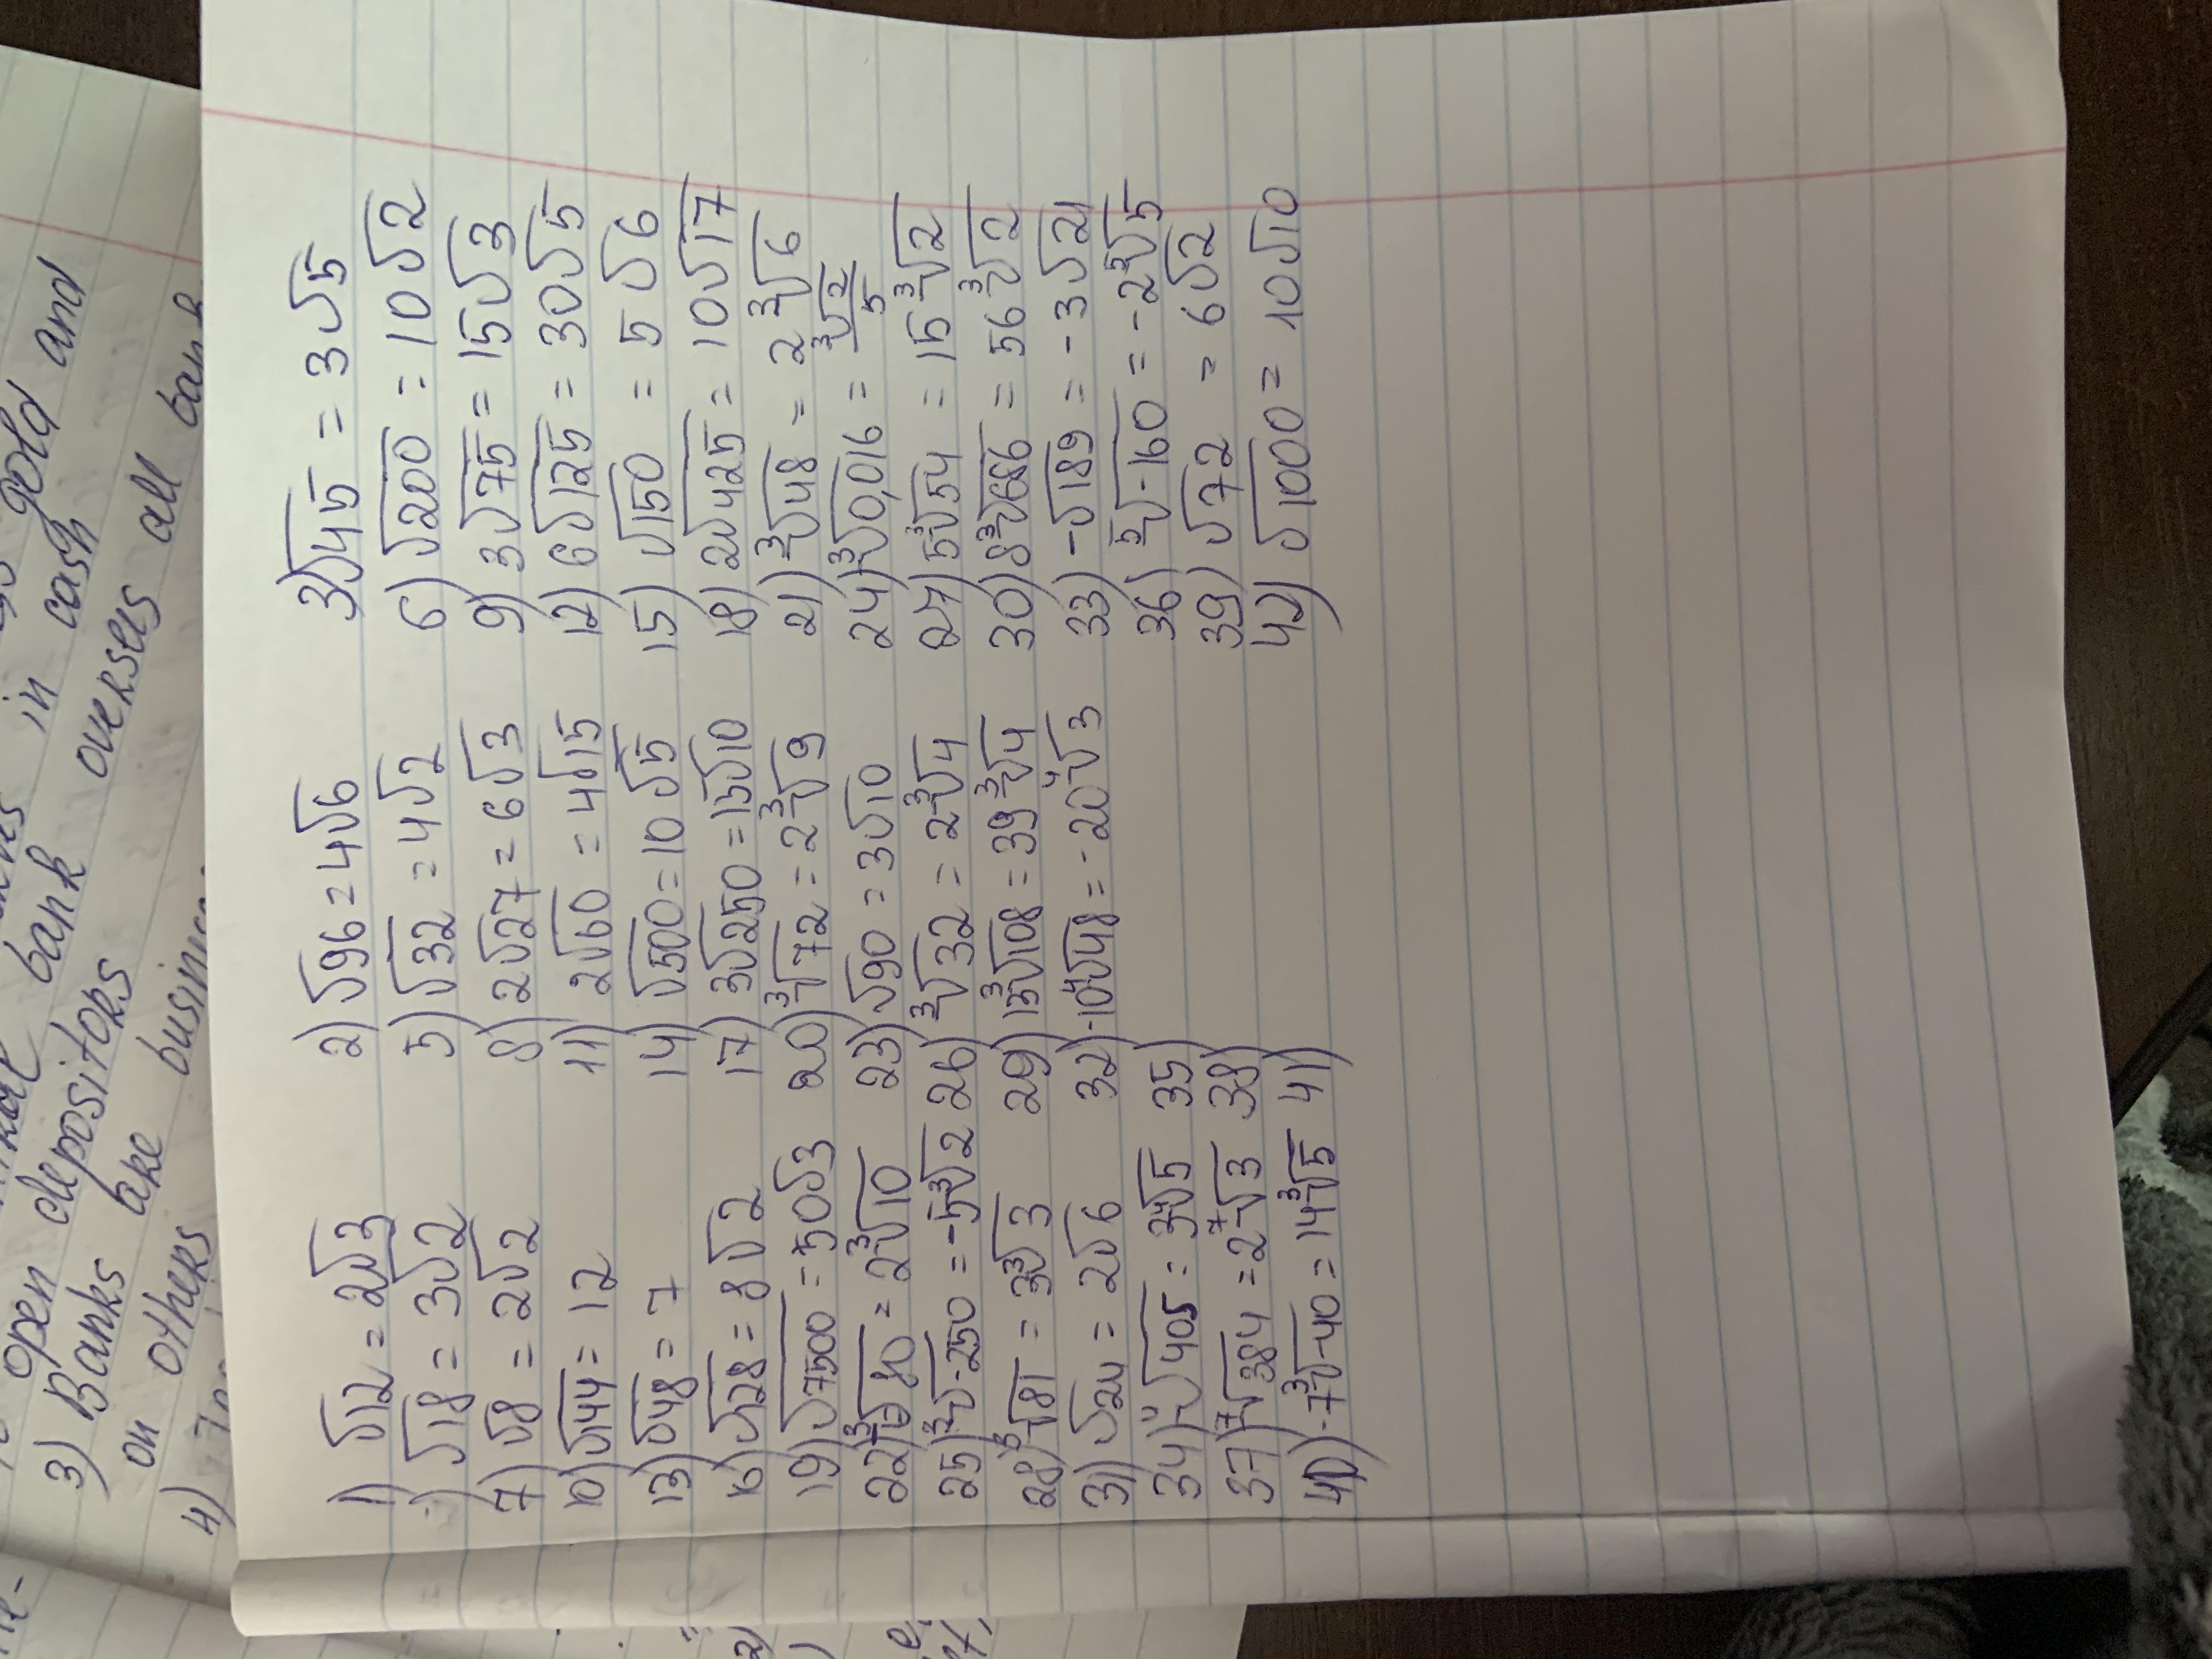 gold and
in cash
open depositors bank oversees all bank
3) Banks are
on others
4)
1) √12 = 2√3 2) √96 = 4√6 3) √45 = 3√5
√18 = 3√2 5) √32 = 4√2 6) √200 = 10√2
7) √8 = 2√2 8) 2√27 = 6√3 9) 3√75 = 15√3
10) √144 = 12 11) 2√60 = 4√15 12) 6√125 = 30√5
13) √48 = 7 14) √500 = 10√5 15) √150 = 5√6
16) √128 = 8√2 17) 3√250 = 15√10 18) 2√425 = 10√17
19) √7500 = 50√3 20) ³√72 = 2³√9 21) ³√48 = 2³√6
22) ³√80 = 2³√10 23) √90 = 3√10 24) ³√0,016 = ³√2/5
25) ³√-250 = -5³√2 26) ³√32 = 2³√4 27) 5³√54 = 15³√2
28) ³√81 = 3³√3 29) 13³√108 = 39³√4 30) 8³√686 = 56³√2
31) √24 = 2√6 32) -10⁴√48 = -20⁴√3 33) -√189 = -3√21
34) ⁴√405 = 3⁴√5 35) 36) ⁵√-160 = -2⁵√5
37) ⁷√384 = 2⁷√3 38) 39) √72 = 6√2
40) -7³√-40 = 14³√5 41) 42) √1000 = 10√10